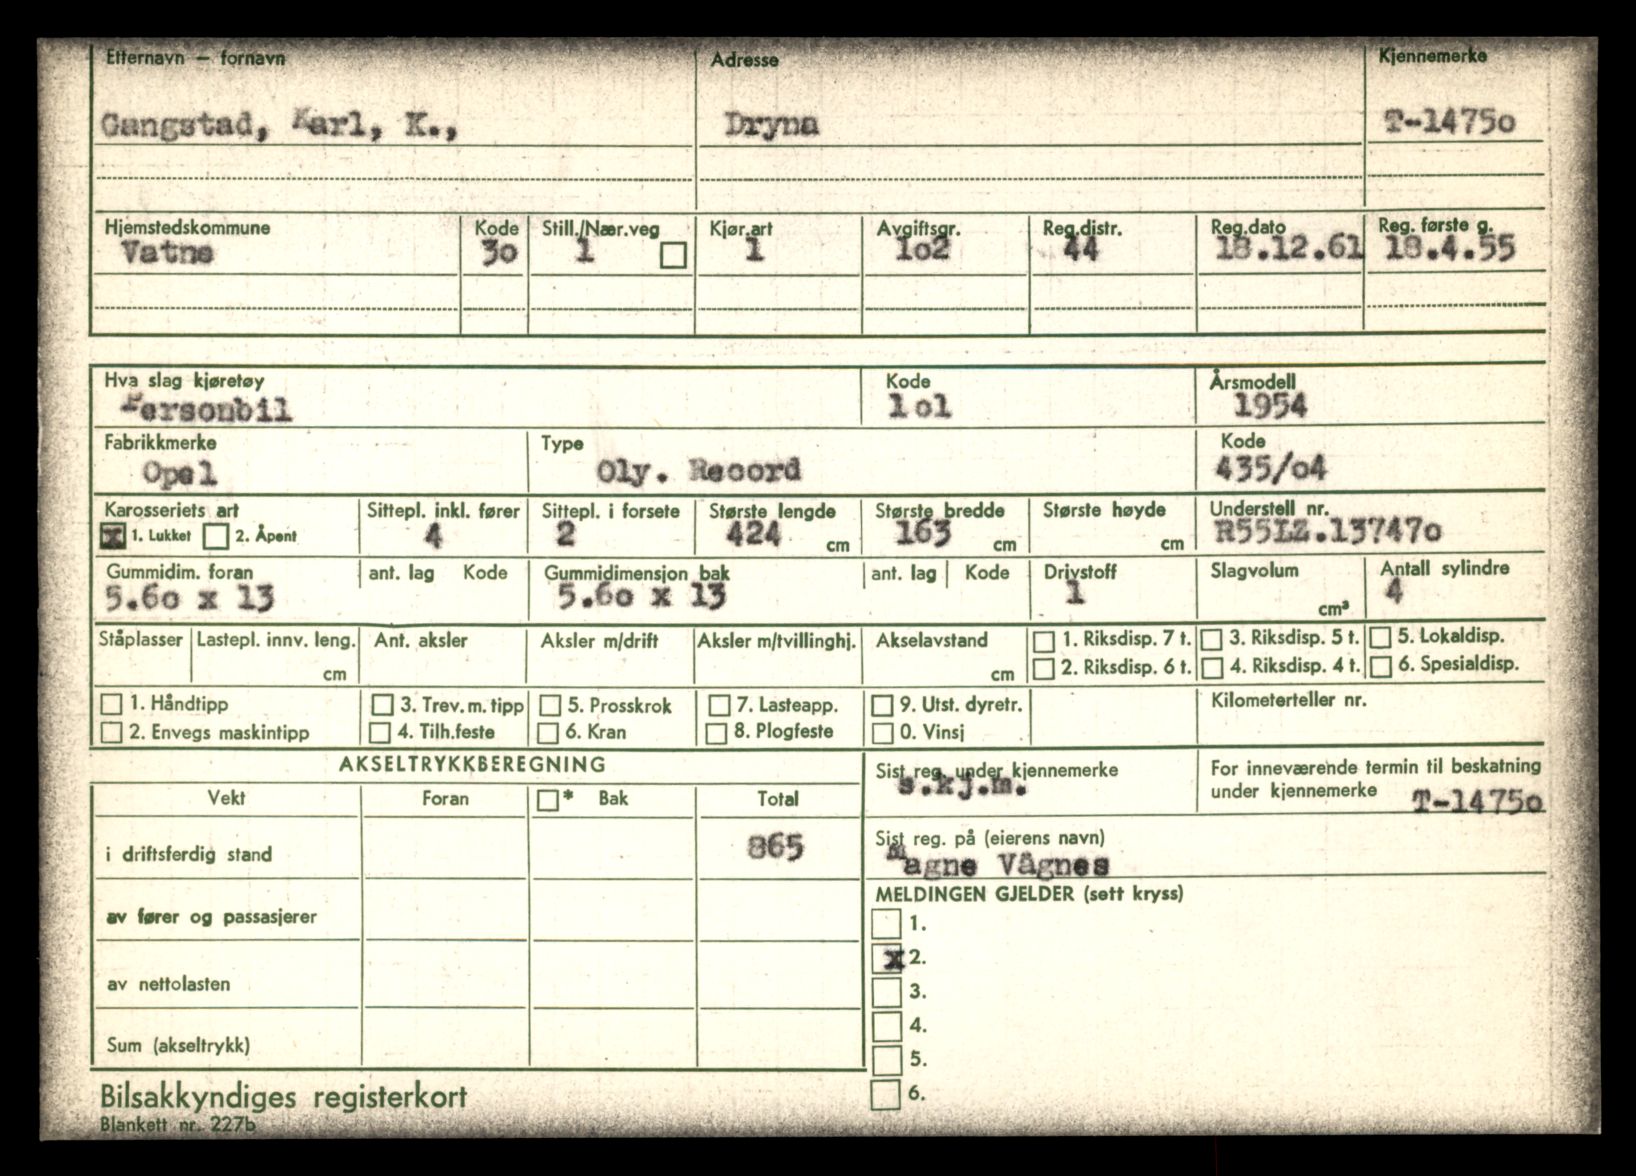 Etternavn — fornavn Adresse Kjennemerke
Gangstad, Karl, K., Dryna T-1475o
Hjemstedskommune Kode Still./Nær.veg Kjør.art Avgiftsgr. Reg.distr. Reg.dato Reg. første g.
Vatne 3o 1 1 1o2 44 18.12.61 18.4.55
Hva slag kjøretøy Kode Årsmodell
Personbil 1o1 1954
Fabrikkmerke Type Kode
Opel Oly. Record 435/o4
Karosseriets art Sittepl. inkl. fører Sittepl. i forsete Største lengde Største bredde Største høyde Understell nr.
x 1. Lukket 2. Åpent 4 2 424 cm 163 cm cm R55LZ.13747o
Gummidim. foran ant. lag Kode Gummidimensjon bak ant. lag Kode Drivstoff Slagvolum Antall sylindre
5.6o x 13 5.6o x 13 1 cm³ 4
Ståplasser Lastepl. innv. leng. Ant. aksler Aksler m/drift Aksler m/tvillinghj. Akselavstand 1. Riksdisp. 7 t. 3. Riksdisp. 5 t. 5. Lokaldisp.
cm cm 2. Riksdisp. 6 t. 4. Riksdisp. 4 t. 6. Spesialdisp.
1. Håndtipp 3. Trev. m. tipp 5. Prosskrok 7. Lasteapp. 9. Utst. dyretr. Kilometerteller nr.
2. Envegs maskintipp 4. Tilh.feste 6. Kran 8. Plogfeste 0. Vinsj
AKSELTRYKKBEREGNING Sist reg. under kjennemerke For inneværende termin til beskatning
s.kj.m. under kjennemerke T-1475o
Vekt Foran * Bak Total
Sist reg. på (eierens navn)
i driftsferdig stand 865
Magne Vågnes
MELDINGEN GJELDER (sett kryss)
av fører og passasjerer 1.
x 2.
av nettolasten 3.
4.
Sum (akseltrykk) 5.
6.
Bilsakkyndiges registerkort
Blankett nr. 227b